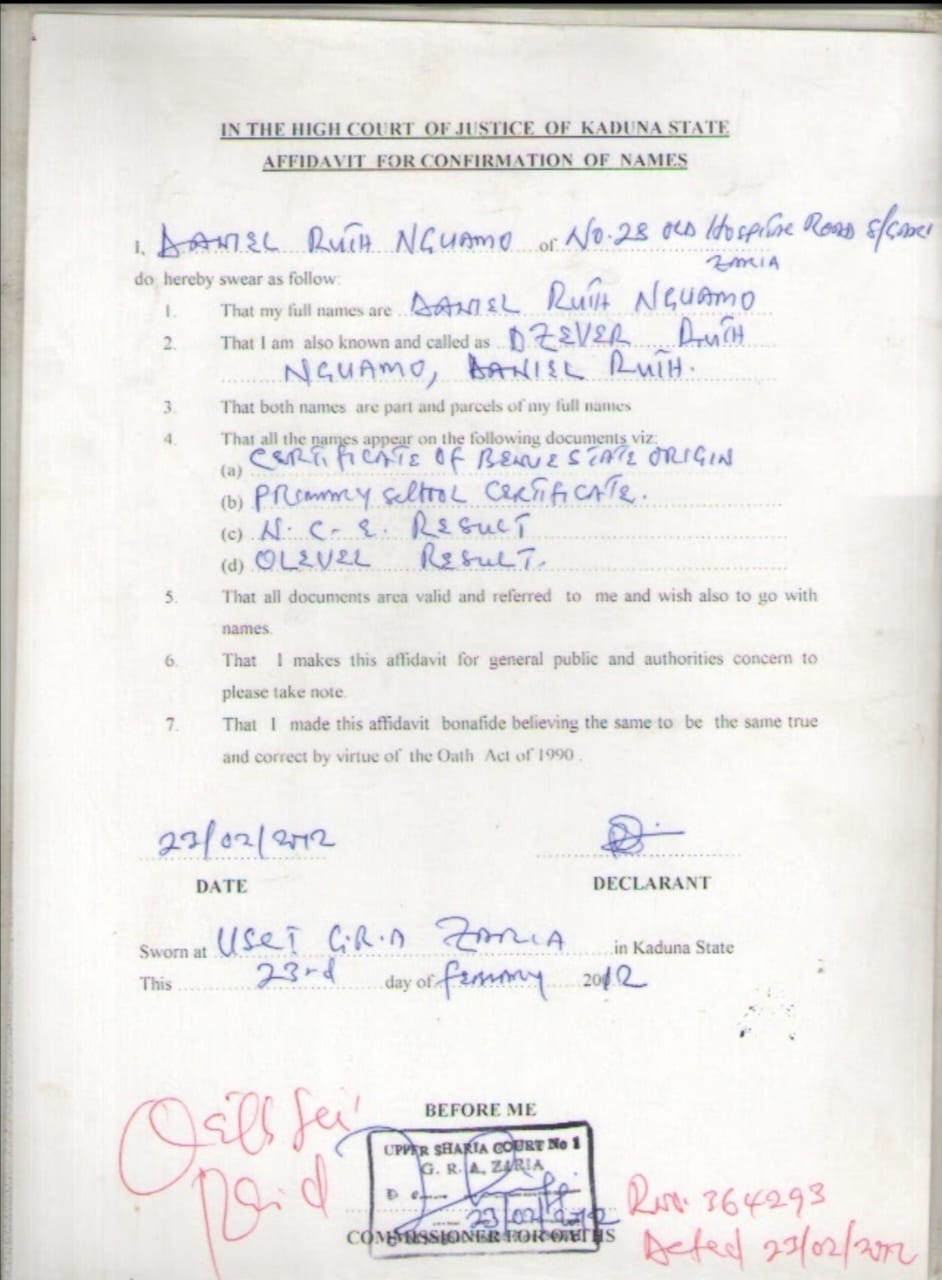 IN THE HIGH COURT OF JUSTICE OF KADUNA STATE
AFFIDAVIT FOR CONFIRMATION OF NAMES
I, DANIEL RUTH NGUAMO of No. 28 OLD HOSPITAL ROAD S/GARI
ZARIA
do hereby swear as follow:
1. That my full names are DANIEL RUTH NGUAMO
2. That I am also known and called as DZEVER RUTH
NGUAMO, DANIEL RUTH.
3. That both names are part and parcels of my full names
4. That all the names appear on the following documents viz:
(a) CERTIFICATE OF BENUE STATE ORIGIN
(b) PRIMARY SCHOOL CERTIFICATE.
(c) N. C. E. RESULT
(d) OLEVEL RESULT.
5. That all documents area valid and referred to me and wish also to go with
names.
6. That I makes this affidavit for general public and authorities concern to
please take note.
7. That I made this affidavit bonafide believing the same to be the same true
and correct by virtue of the Oath Act of 1990.
23/02/2012
DATE DECLARANT
Sworn at USCI G.R.A ZARIA in Kaduna State
This 23rd day of february 2012
BEFORE ME
UPPER SHARIA COURT No 1
G. R. A, ZARIA
Oath fee
Paid
23/02/2012
COMMISSIONER FOR OATHS
364293
Dated 23/02/2012